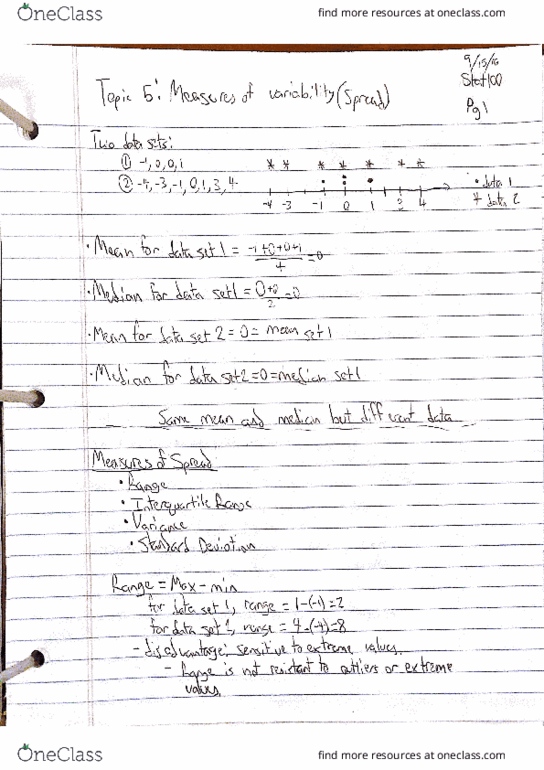 OneClass
find more resources at oneclass.com
9/15/16
Stat100
Pg 1
Topic 5: Measures of variability (Spread)
Two data sets:
① -1,0,0,1
② -4,-3,-1,0,1,3,4
* * * * * * *
• data 1
* data 2
-4 -3 -1 0 1 3 4
• Mean for data set 1 = -1+0+0+1 / 4 = 0
• Median for data set 1 = 0+0 / 2 = 0
• Mean for data set 2 = 0 = mean set 1
• Median for data set 2 = 0 = median set 1
Same mean and median but different data
Measures of Spread
• Range
• Interquartile Range
• Variance
• Standard Deviation
Range = Max - min
for data set 1, range = 1-(-1)=2
for data set, range = 4-(-4)=8
- disadvantage: sensitive to extreme values
- Range is not resistant to outliers or extreme
values
OneClass
find more resources at oneclass.com